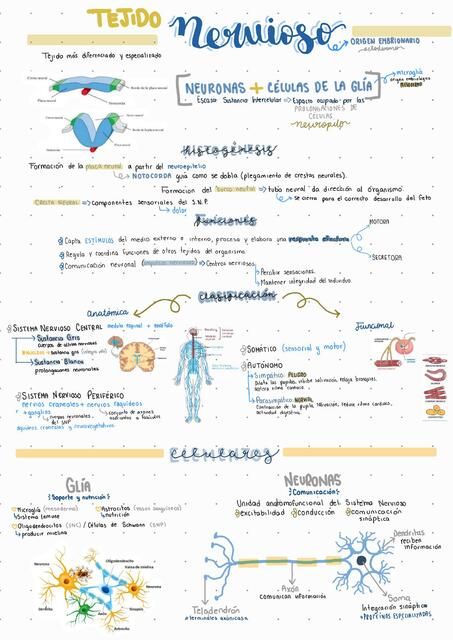 TEJIDO
nervioso
ORIGEN EMBRIONARIO
ectodermo
Tejido más diferenciado y especializado
NEURONAS + CÉLULAS DE LA GLÍA
microglía
origen embriológico
Escasa Sustancia Intercelular ⇒ Espacio ocupado por las
PROLONGACIONES DE
CÉLULAS
neuropilo
histogénesis
Formación de la placa neural a partir del neuroepitelio
NOTOCORDA guía como se dobla (plegamiento de crestas neurales).
Formación del tubo neural ⇒ tubo neural da dirección al organismo.
CRESTA NEURAL ⇒ componentes sensoriales del S.N.P.
se cierra para el correcto desarrollo del feto
dolor
funciones
MOTORA
Capta ESTÍMULOS del medio externo e interno, procesa y elabora una respuesta efectora
Regula y coordina funciones de otros tejidos del organismo.
SECRETORA
Comunicación neuronal (impulsos nerviosos) ⇒ Centros nerviosos
Percibir sensaciones.
Mantener integridad del individuo.
clasificación
Anatómica
Funcional
SISTEMA NERVIOSO CENTRAL médula espinal + encéfalo
Sustancia Gris
cuerpos de células nerviosas
Sustancia Blanca
prolongaciones neuronales
SOMÁTICO (sensorial y motor)
AUTÓNOMO
Simpático: PELIGRO
Dilata las pupilas, inhibe salivación, relaja bronquios,
acelera ritmo cardíaco.
Parasimpático: NORMAL
Contracción de la pupila, salivación, reduce ritmo cardíaco,
actividad digestiva.
SISTEMA NERVIOSO PERIFÉRICO
nervios craneales + nervios raquídeos
+ ganglios
cuerpos neuronales
del SNP
conjunto de axones
celulares
GLÍA
Soporte y nutrición
Microglía (mesoderma)
Sistema inmune
Astrocitos (vasos sanguíneos)
nutrición
Oligodendrocitos (SNC) / Células de Schwann (SNP)
producir mielina
NEURONAS
Comunicación
Unidad anatomofuncional del Sistema Nervioso
excitabilidad conducción comunicación
sináptica
Dendritas
reciben
información
Axón
comunican información
Soma
Integración sináptica
Telodendrón
terminales axónicas
Oligodendrocito
Vaina de mielina
Neurona
Neurona
Dendrita
Axón
Sinapsis
Astrocito